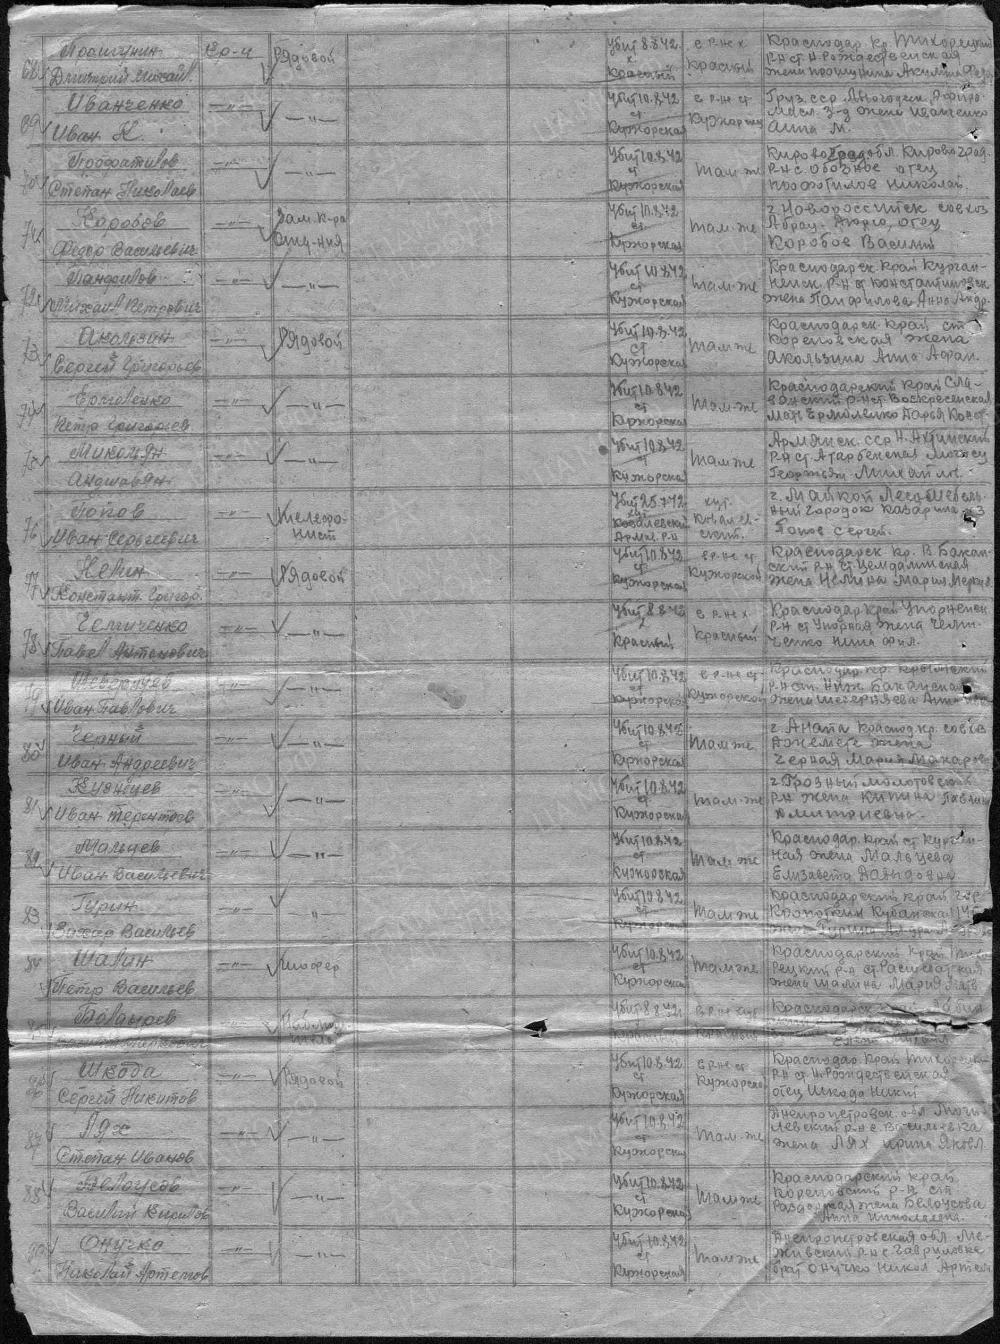 68 Прашунин Ер-ч Рядовой Убит 8.8.42 в р-не х Краснодар. кр. Тихорецкий
х Красный Красный р-н ст. Н-Рождественская
Дмитрий Михай. жена Прошунина Акилина
69 Иванченко —„— —„— Убит 10.8.42 в р-не ст Груз. сср
ст Кужорская Кужорская жена Иванченко
Иван К. Анна М.
70 Подфатилов —„— —„— Убит 10.8.42 Кировоградобл. Кировоград.
ст там же р-н с. Обозное отец
Степан Николаев Кужорская Николай.
71 Коробов —„— Зам. к-ра Убит 10.8.42 г. Новороссийск совхоз
отд-ния ст там-же Абрау-Дюрсо, отец
Федор Васильевич Кужорская Коробов Василий
72 Панфилов —„— —„— Убит 10.8.42 Краснодарск. край Курган-
ст там-же ненск. р-н ст Константиновск.
Михаил Петрович Кужорская жена Панфилова Анна Андр.
73 Акользин —„— Рядовой Убит 10.8.42 Краснодарск. край ст
ст там же Кореновская жена
Сергей Григорьев Кужорская Акользина Анна Афан.
74 Ермоленко —„— —„— Убит 10.8.42 Краснодарский край Сла-
ст там-же вянский р-н ст. Воскресенская
Петр Григорьев Кужорская мать Ермоленко Дарья Конст.
75 Микольян —„— —„— Убит 10.8.42 Армянск. сср Н. Ахтинский
ст там же р-н ст.
Андшавян Кужорская
76 Попов телефо- Убит 25.7.42 хут. г. Майкоп Лесомебель-
нист хут Ковалевская Ковалев- ный городок Казарма №3
Иван Сергеевич Армав. р-н ский. Попов Сергей.
77 Нелин —„— Рядовой Убит 10.8.42 в р-не ст Краснодарск. кр. В. Бакан-
ст Кужорской ский р-н ст Цемдалинская
Константин Григор. Кужорская жена Нелина Мария
78 Челниченко —„— —„— Убит 8.8.42 в р-не х Краснодар. край Упорненск
х красный р-н ст Упорная жена Челни-
Павел Антонович Красный ченко Нина Фил.
79 —„— —„— Убит 10.8.42 в р-не ст Краснодар. кр. Крымский
ст Кужорской р-н ст. Ниж. Баканская
Иван Павлович Кужорская жена Анна
80 Черный —„— —„— Убит 10.8.42 г. Анапа Краснод кр. совхоз
ст там же Джемете жена
Иван Андреевич Кужорская Черная Мария Макаров.
81 Кузнецов —„— —„— Убит 10.8.42 г. Грозный Молотовский
ст там-же р-н жена Кипина Павлина
Иван Терентьев Кужорская Дмитриевна.
82 Мальцев —„— —„— Убит 10.8.42 Краснодар. край ст Курган-
ст там-же ная жена Мальцева
Иван Васильевич Кужорская Елизавета Давыдовна
83 Гурин —„— —„— Убит 10.8.42 Краснодарский край гор
ст там-же Кропоткин Кубанская
Захар Васильев Кужорская жена Гурина
84 Шалин —„— шофер Убит 10.8.42 Краснодарский край Тихо-
ст там же рецкий р-н ст. Расшеватская
Петр Васильев Кужорская жена Шалина Мария
85 Болдырев —„— Убит 8.8.42 в р-не хут Краснодарск край
Красный Красный
86 Шкода —„— Рядовой Убит 10.8.42 в р-не ст Краснодар. край Тихорецк.
ст Кужорской р-н ст. Н. Рождественская
Сергей Никитов Кужорская отец Шкода Никит
87 Лях —„— —„— Убит 10.8.42 Днепропетровск. обл Моги-
ст там-же левский р-н с. Васильевка
Степан Иванов Кужорская жена Лях Ирина Яковл.
88 Белоусов —„— —„— Убит 10.8.42 Краснодарский край
ст там же Кореновский р-н ст
Василий Кирилов Кужорская Раздорская жена Белоусова
Анна Николаевна.
90 Онучко —„— —„— Убит 10.8.42 Днепропетровская обл Ме-
ст там же жевский р-н с. Гавриловка
Николай Артемов Кужорская брат Онучко Никол Артем